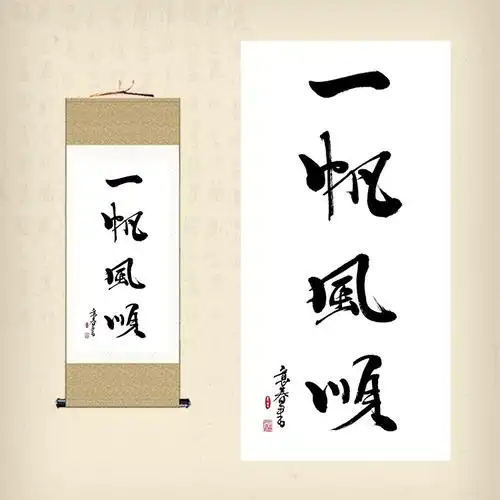 一帆風順
一帆風順